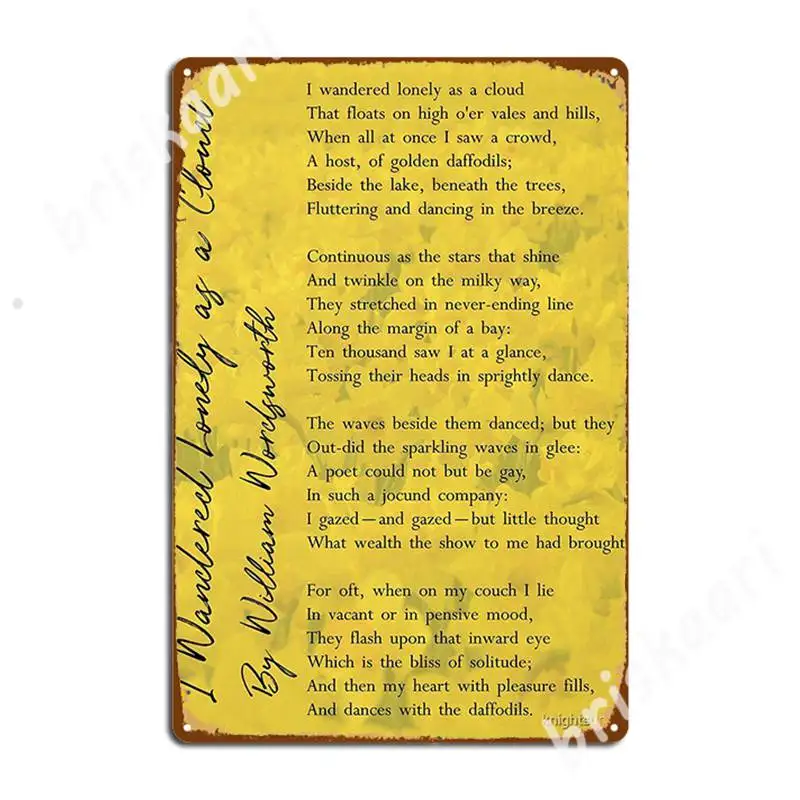 I Wandered Lonely as a Cloud
By William Wordsworth
I wandered lonely as a cloud
That floats on high o'er vales and hills,
When all at once I saw a crowd,
A host, of golden daffodils;
Beside the lake, beneath the trees,
Fluttering and dancing in the breeze.
Continuous as the stars that shine
And twinkle on the milky way,
They stretched in never-ending line
Along the margin of a bay:
Ten thousand saw I at a glance,
Tossing their heads in sprightly dance.
The waves beside them danced; but they
Out-did the sparkling waves in glee:
A poet could not but be gay,
In such a jocund company:
I gazed—and gazed—but little thought
What wealth the show to me had brought
For oft, when on my couch I lie
In vacant or in pensive mood,
They flash upon that inward eye
Which is the bliss of solitude;
And then my heart with pleasure fills,
And dances with the daffodils.
briskaari
briskaari